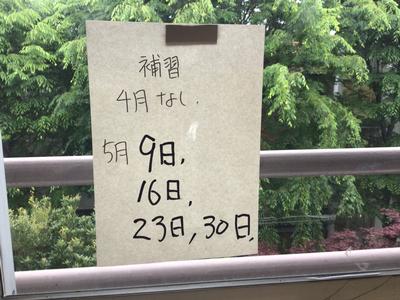 補習
4月 なし.
5月 9日,
16日,
23日, 30日.